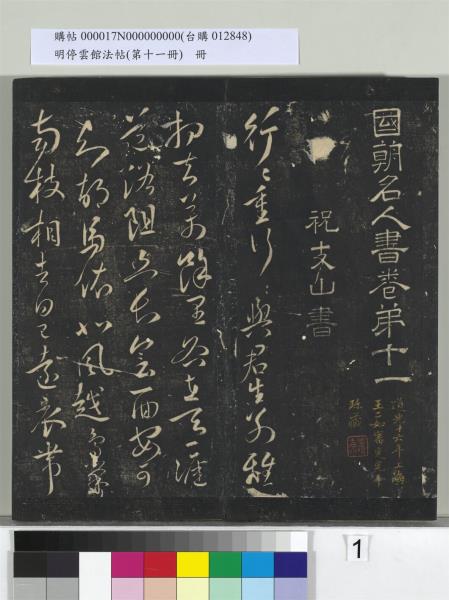 購帖 000017N000000000(台購 012848)
明停雲館法帖(第十一冊) 冊
國朝名人書卷第十一
祝支山書
行〻重行〻與君生別離
相去萬餘里各在天一涯
道路阻且長會面安可
知胡馬依北風越鳥巢
南枝相去日已遠衣帶
1